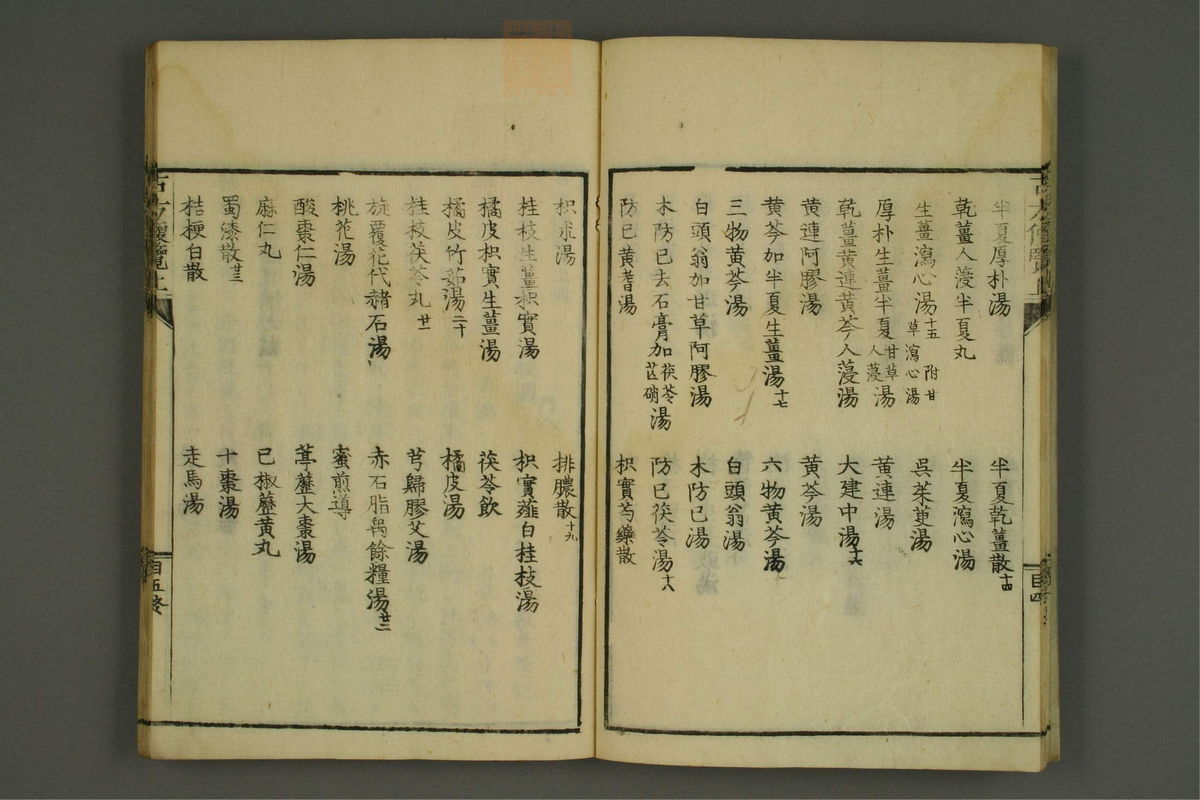 半夏厚朴湯
半夏乾薑散 十四
乾薑人蓡半夏丸
半夏瀉心湯
生薑瀉心湯 十五 附甘草瀉心湯
呉茱萸湯
厚朴生薑半夏甘草人蓡湯
黄連湯
乾薑黄連黄芩人蓡湯
大建中湯 十六
黄連阿膠湯
黄芩湯
黄芩加半夏生薑湯 十七
六物黄芩湯
三物黄芩湯
白頭翁湯
白頭翁加甘草阿膠湯
木防已湯
木防已去石膏加茯苓芒硝湯
防已茯苓湯 十八
防已黄耆湯
枳實芍藥散
目四
枳朮湯
排膿散 十九
桂枝生薑枳實湯
枳實薤白桂枝湯
橘皮枳實生薑湯
茯苓飲
橘皮竹茹湯 二十
橘皮湯
桂枝茯苓丸 廿一
芎歸膠艾湯
旋覆花代赭石湯
赤石脂禹餘糧湯 廿二
桃花湯
蜜煎導
酸棗仁湯
葶藶大棗湯
麻仁丸
已椒藶黄丸
蜀漆散 廿三
十棗湯
桔梗白散
走馬湯
古方便覽上
目五終